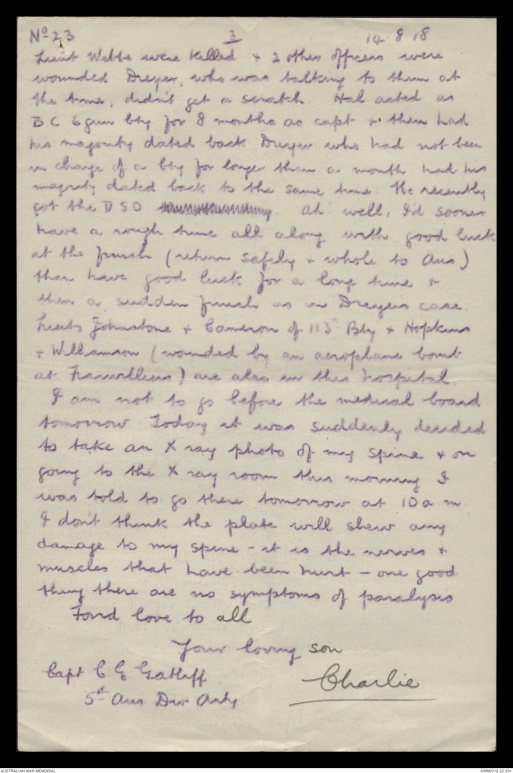 No 23 3 14 8 18
Lieut Webbs were killed & 2 other officers were
wounded Dreyer, who was talking to them at
the time, didn't get a scratch Hal acted as
B C 6 gun bty for 8 months as capt & then had
his majority dated back Dreyer who had not been
in charge of a bty for longer than a month had his
majority dated back to the same time. He recently
got the D S O Ah well, I'd sooner
have a rough time all along with good luck
at the finish (return safely & whole to Aus)
than have good luck for a long time &
then a sudden finish as in Dreyers case.
Lieuts Johnstone & Cameron of 113 Bty & Hopkins
& Williamson (wounded by an aeroplane bomb
at Franvillers) are also in this hospital
I am not to go before the medical board
tomorrow Today it was suddenly decided
to take an X ray photo of my spine & on
going to the X ray room this morning I
was told to go there tomorrow at 10 a m
I don't think the plate will shew any
damage to my spine - it is the nerves &
muscles that have been hurt - one good
thing there are no symptoms of paralysis
Fond love to all
Your loving son
Charlie
Capt C E Gatliff
5th Aus Div Arty
AUSTRALIAN WAR MEMORIAL